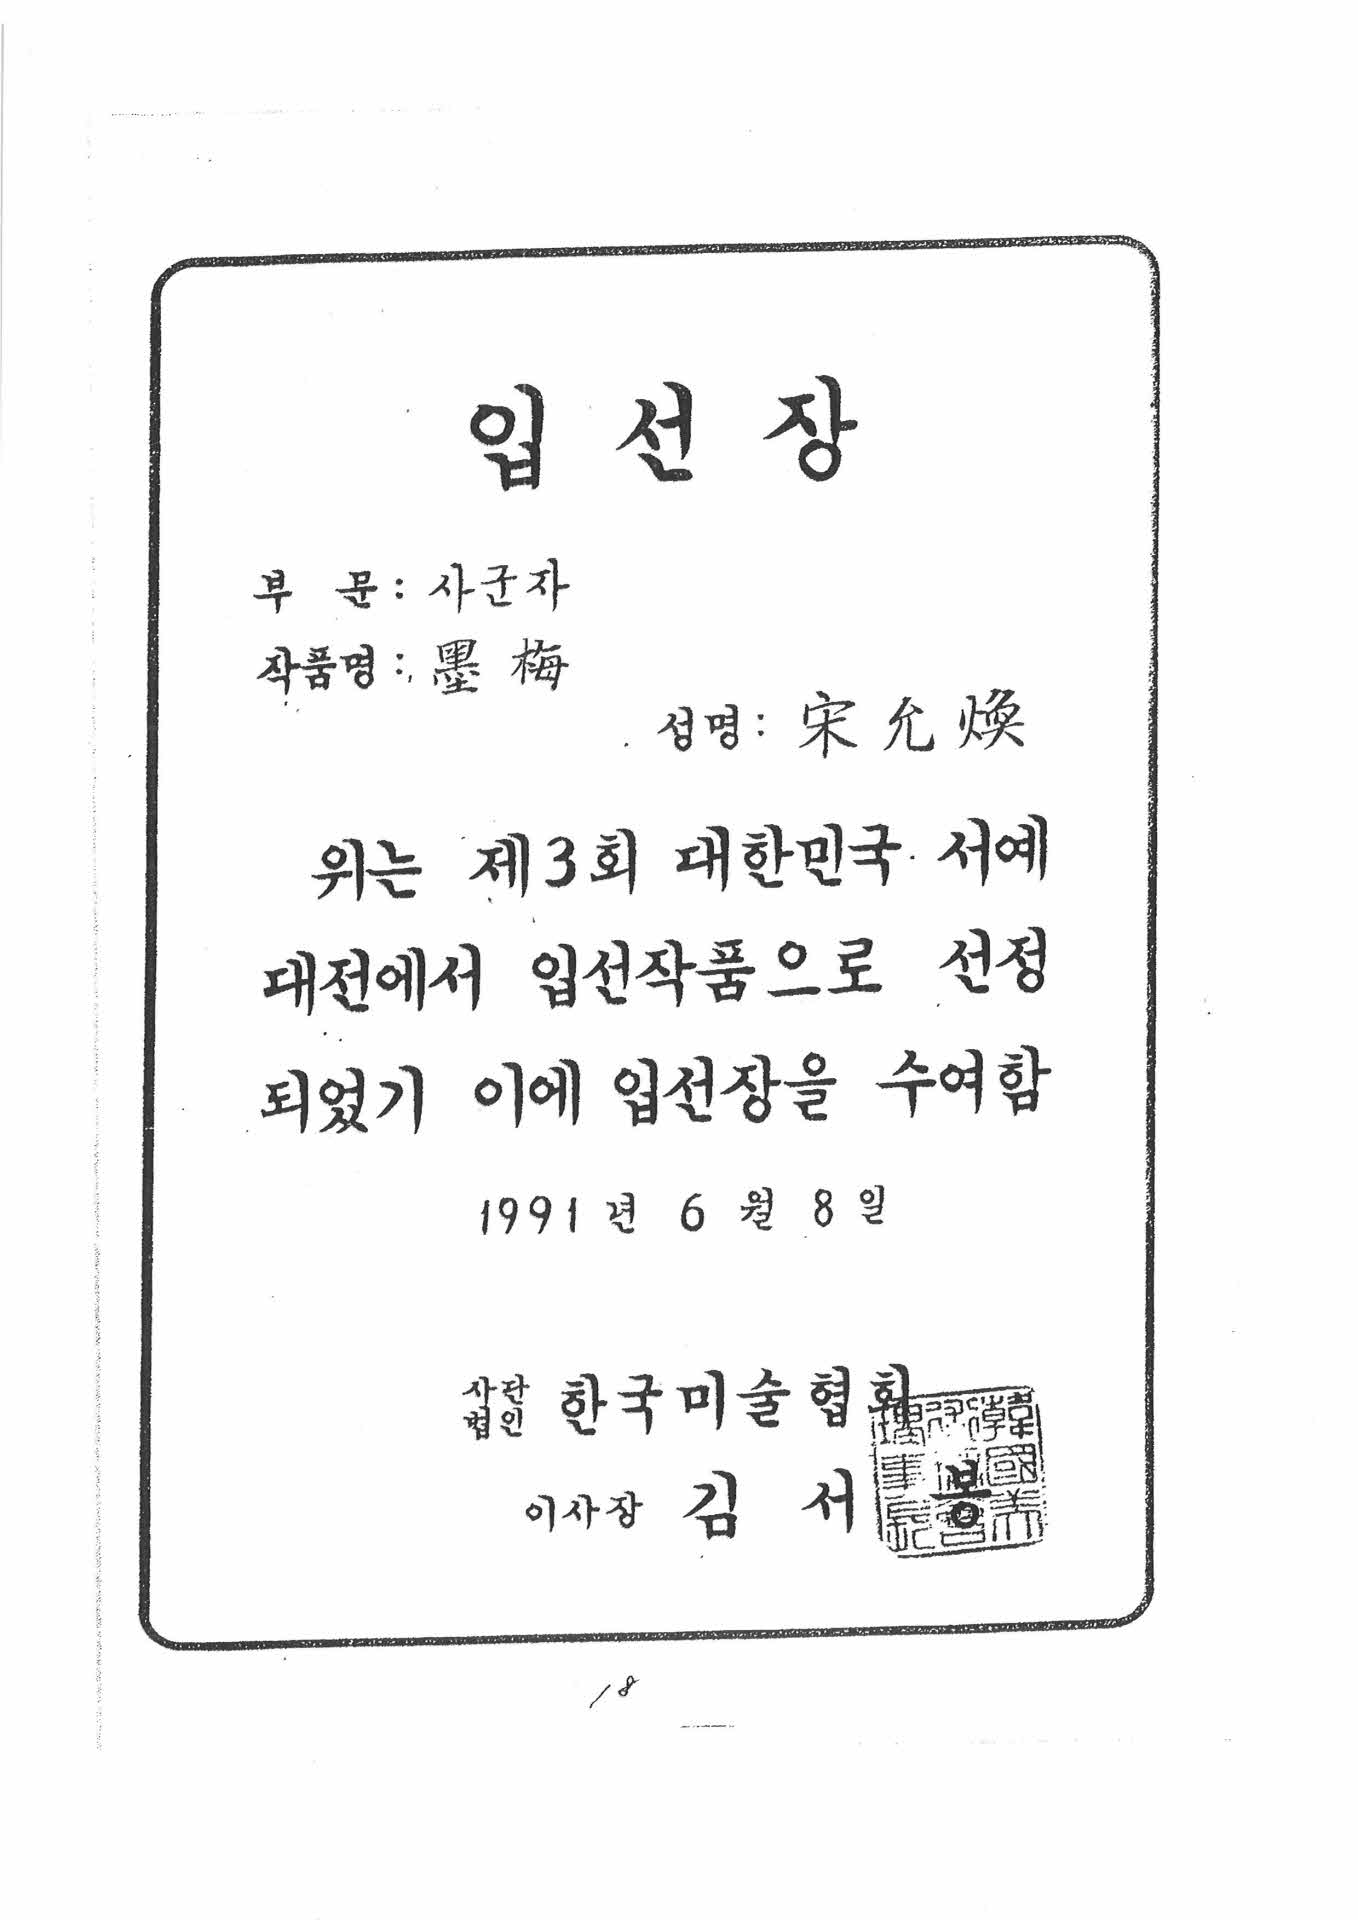 입선장
부 문 : 사군자
작품명 : 墨梅
성명 : 宋允煥
위는 제3회 대한민국 서예
대전에서 입선작품으로 선정
되었기 이에 입선장을 수여함
1991년 6월 8일
사단법인 한국미술협회
이사장 김서봉
18